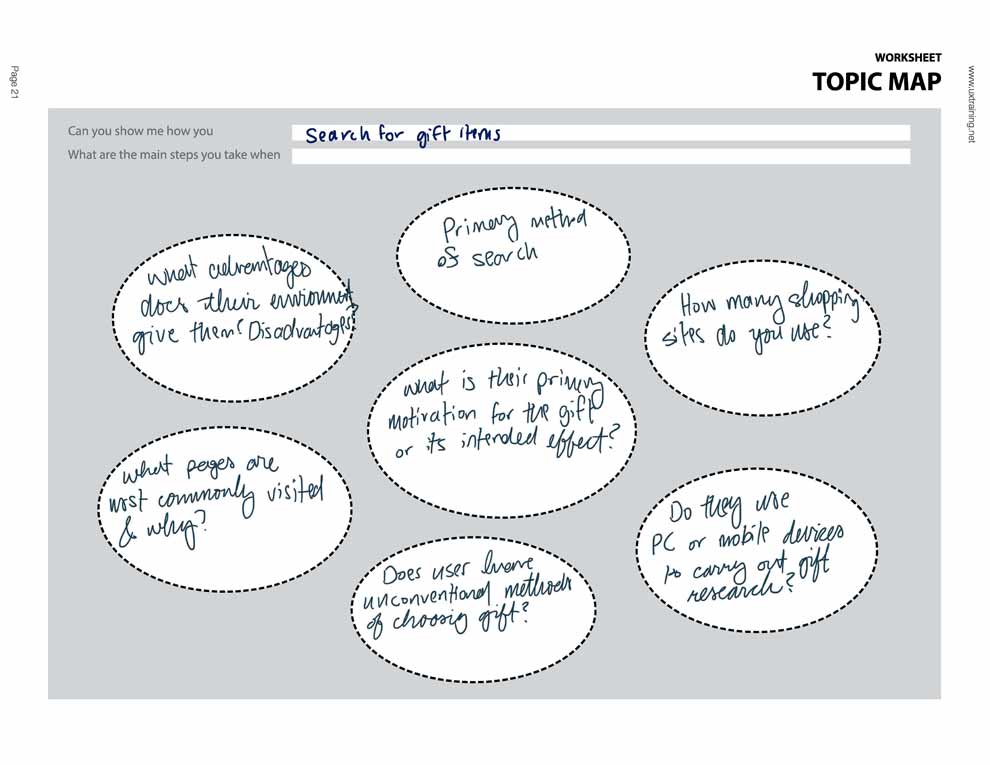 WORKSHEET
TOPIC MAP
Page 21
www.uxtraining.net
Can you show me how you
Search for gift items
What are the main steps you take when
Primary method
of search
What advantages
does their environment
give them? Disadvantages?
How many shopping
sites do you use?
What is their primary
motivation for the gift
or its intended effect?
What pages are
most commonly visited
& why?
Do they use
PC or mobile devices
to carry out gift
research?
Does user have
unconventional methods
of choosing gift?